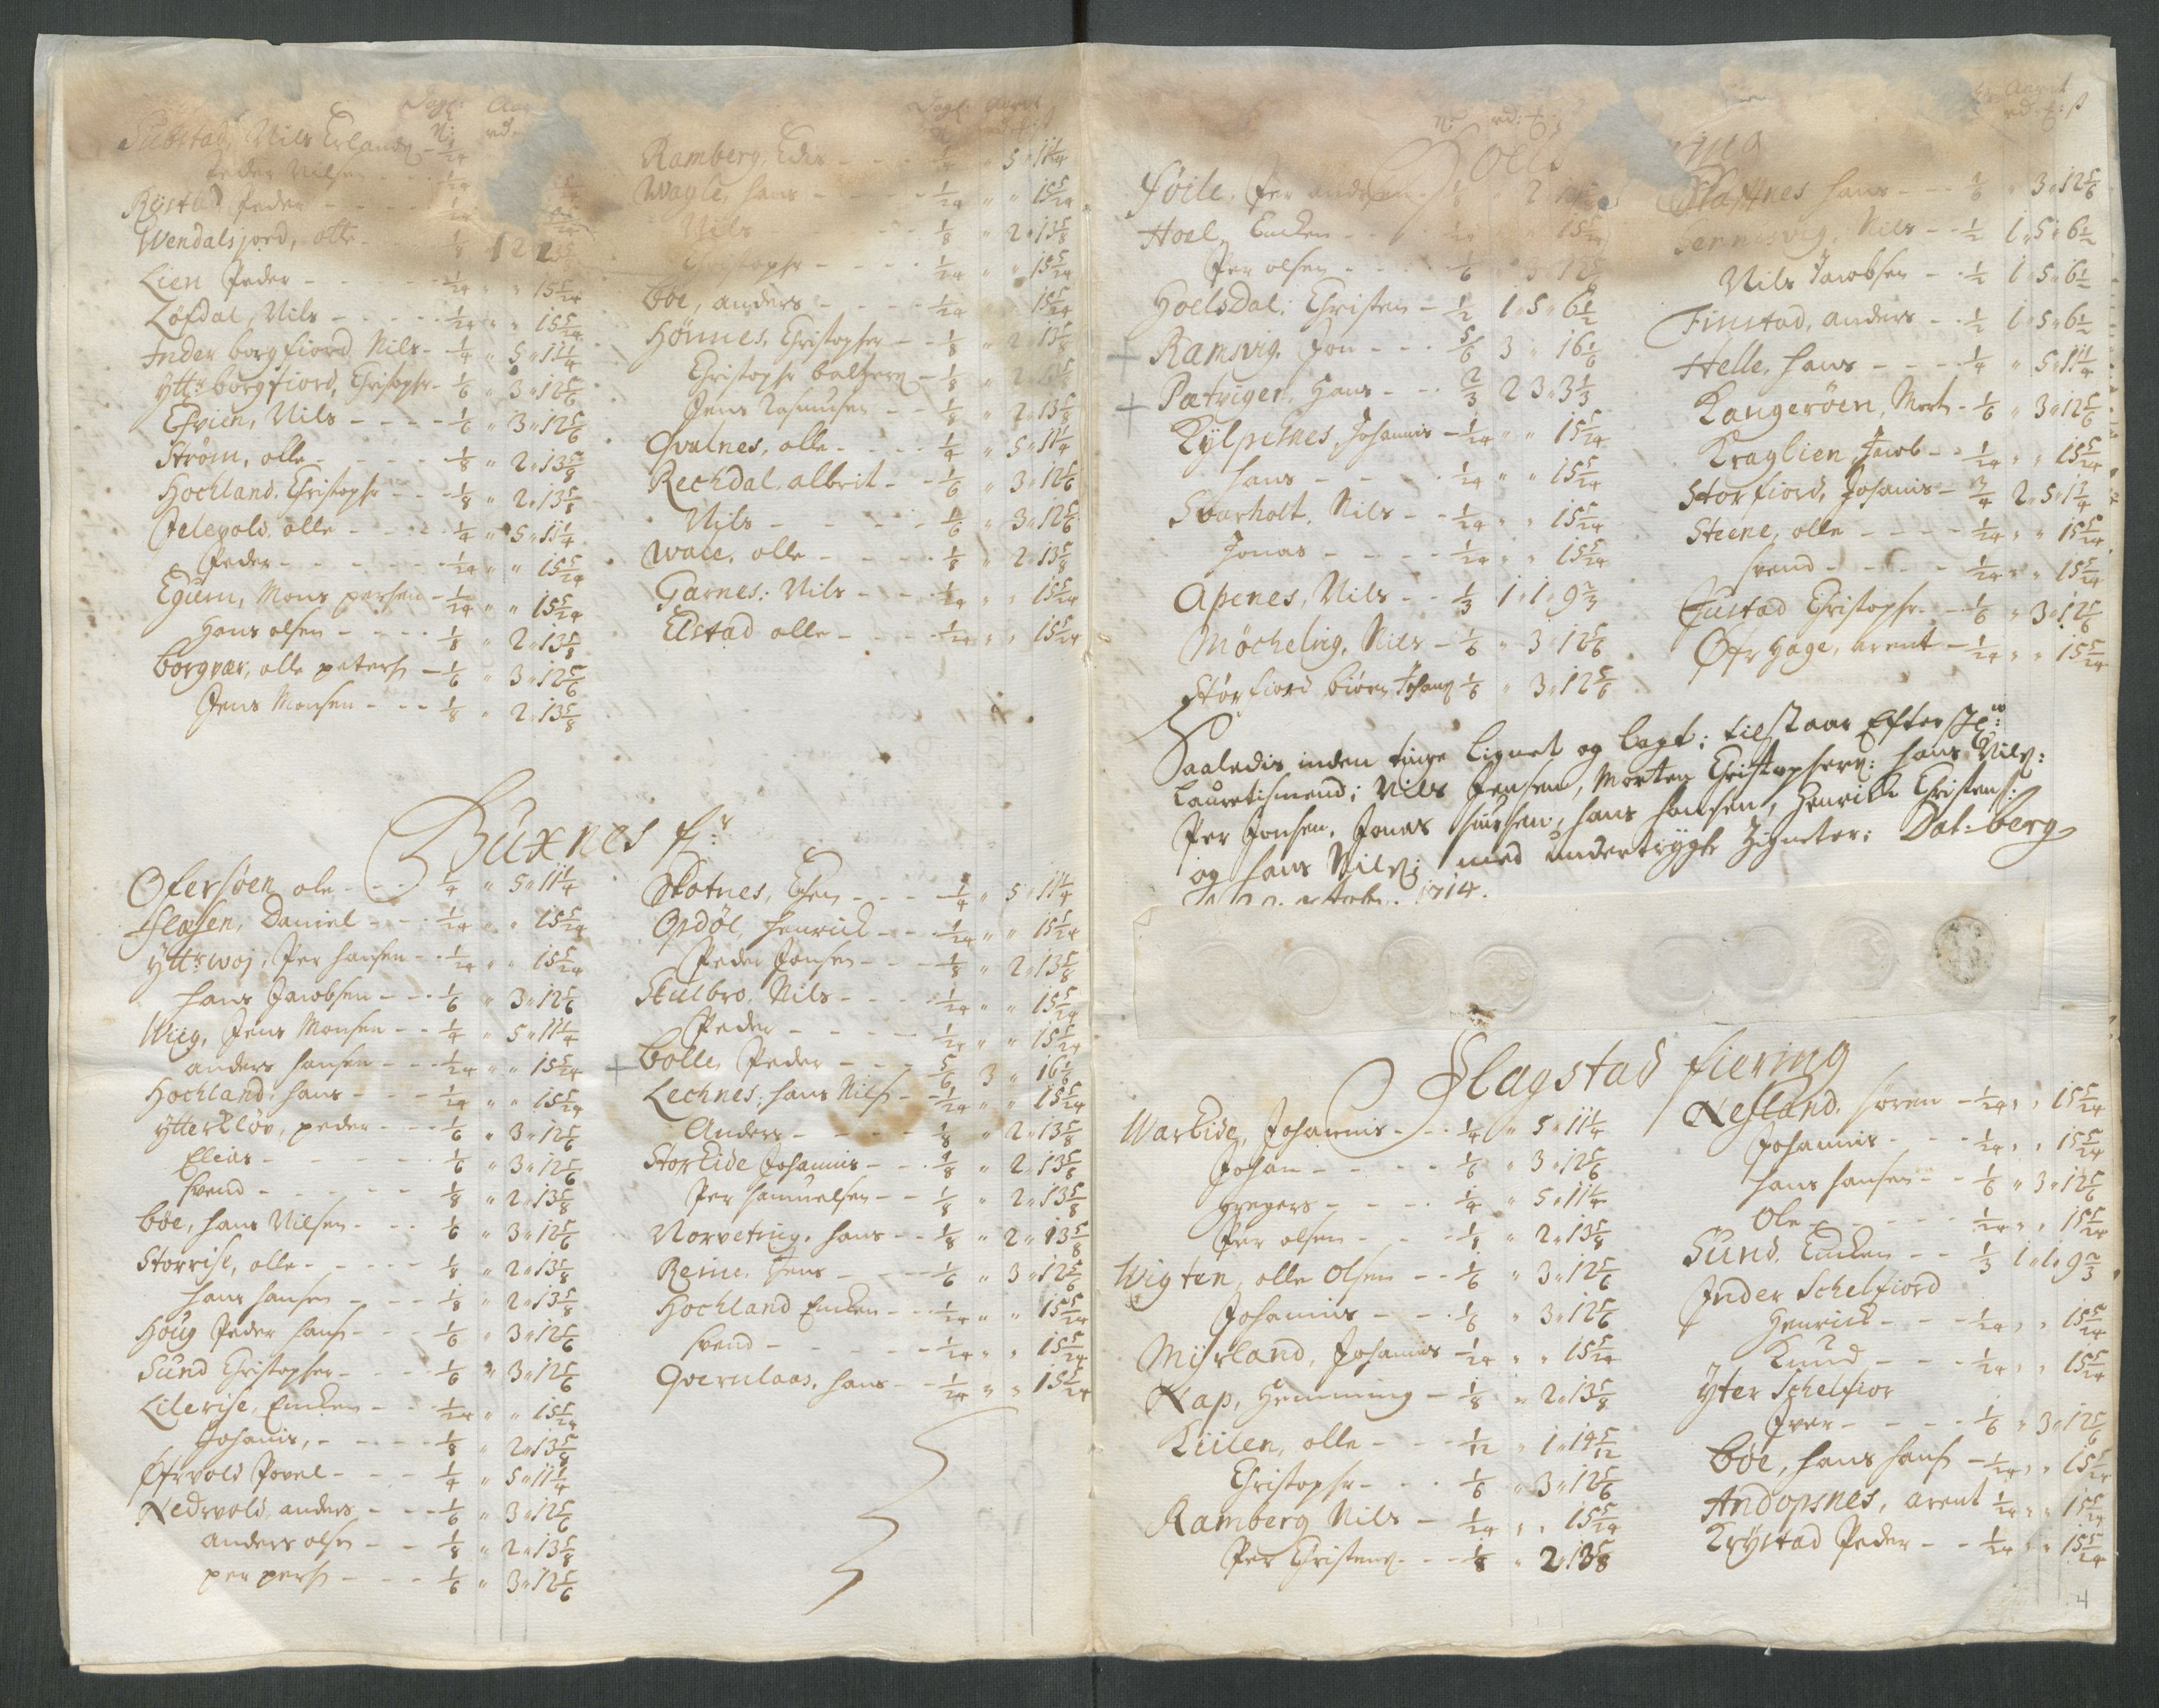 Nils Erlandsz - 1/24
Peder Nilsen - - 1/24
Røistad Peder - - - 1/24
Wendalsjord, olle - - 1/8
Lien Peder - - - - 1/24 " " 15 5/24
Løfdal, Nils - - - - 1/24 " " 15 5/24
Inder borgfiord Nils - 1/4 " 5 " 11 1/4
ytt:r borgfiord, Christopher - 1/6 " 3 " 12 5/6
Nils - - - - 1/6 " 3 " 12 5/6
Strøm, olle - - - - 1/8 " 2 " 13 5/8
Hochland, Christophr - - 1/8 " 2 " 13 5/8
olle - - - - 1/4 " 5 " 11 1/4
Peder - - - - - 1/24 " " 15 5/24
Egum, Mons persen - 1/24 " " 15 5/24
Hans olsen - - - 1/8 " 2 " 13 5/8
borgvær, olle petersn - 1/6 " 3 " 12 5/6
Jens Monsen - - - 1/8 " 2 " 13 5/8
Ramberg, - - - 1/4 " 5 " 11 1/4
Wagle, hans - - - - 1/24 " " 15 5/24
Nils - - - - 1/8 " 2 " 13 5/8
Christophr - - - 1/24 " " 15 5/24
böe, anders - - - - 1/24 " " 15 5/24
Hønnes, Christopher - - 1/8 " 2 " 13 5/8
Christophr baltzers - 1/8 " 2 " 13 5/8
Jens Rasmusen - - 1/8 " 2 " 13 5/8
Qvalnes, olle - - - - 1/4 " 5 " 11 1/4
Rechdal, albrit - - 1/6 " 3 " 12 5/6
Nils - - - - - 1/6 " 3 " 12 5/6
olle - - - - 1/8 " 2 " 13 5/8
Garnes, Nils - - - 1/24 " " 15 5/24
Elstad olle - - - - 1/24 " " 15 5/24
Buxnes f:r
Ofersøen, ole - - - 1/4 " 5 " 11 1/4
Daniel - - - 1/24 " " 15 5/24
Ytt:r woj, Per hansen - - 1/24 " " 15 5/24
hans Jacobsen - - - 1/6 " 3 " 12 5/6
Wiig, Jens Monsen - - 1/4 " 5 " 11 1/4
anders hansen - - - 1/24 " " 15 5/24
Hochland, hans - - - 1/24 " " 15 5/24
Ytterkløv, peder - - - 1/6 " 3 " 12 5/6
Elias - - - - - 1/6 " 3 " 12 5/6
svend - - - - - - 1/8 " 2 " 13 5/8
böe, hans Nilsen - - - 1/6 " 3 " 12 5/6
Storrise, olle - - - - - 1/8 " 2 " 13 5/8
hans hansen - - - 1/8 " 2 " 13 5/8
Houg Peder hansn - - - 1/6 " 3 " 12 5/6
Sund Christopher - - - 1/6 " 3 " 12 5/6
Lilerise, Encken - - 1/24 " " 15 5/24
Johanis, - - - - 1/8 " 2 " 13 5/8
Øfrvold Povel - - - 1/4 " 5 " 11 1/4
Nedrvold, anders - - - 1/6 " 3 " 12 5/6
anders olsn - - 1/8 " 2 " 13 5/8
per persn - - - 1/6 " 3 " 12 5/6
Skotnes, - - - 1/4 " 5 " 11 1/4
Opdøl, henrick - - - 1/24 " " 15 5/24
Peder Jonsen - - - 1/8 " 2 " 13 5/8
Skulbro, Nils - - - - 1/24 " " 15 5/24
Peder - - - - - 1/24 " " 15 5/24
+ bolle, Peder - - - 5/6 3 " 16 1/6
Lechnes, hans Nilsn - - 1/24 " " 15 5/24
Anders - - - - - 1/8 " 2 " 13 5/8
Storeide Johannis - - - 1/8 " 2 " 13 5/8
Per Samuelsen - - 1/8 " 2 " 13 5/8
hans - - 1/8 " 2 " 13 5/8
Reine, Jens - - - 1/6 " 3 " 12 5/6
Hochland Encken - - 1/24 " " 15 5/24
svend - - - - - - 1/24 " " 15 5/24
hans - - 1/24 " " 15 5/24
Føile, Per andersen
Hoel, Encken - - - 1/24 " " 15 5/24
Per olsen - - - - 1/6 " 3 " 12 5/6
Hoelsdal, Christen - 1/2 1 " 5 " 6 1/2
+ Ramsvig, Jon - - - 5/6 3 " 16 1/6
+ Hans - - 2/3 2 3 " 3 1/3
Johannis - 1/24 " " 15 5/24
hans - - - - 1/24 " " 15 5/24
Svarholt, Nils - - 1/24 " " 15 5/24
Jonas - - - - 1/24 " " 15 5/24
Apenes, Nils - - 1/3 1 " 1 " 9 2/3
Nils - 1/6 " 3 " 12 5/6
Størfiord biørn Johans 1/6 " 3 " 12 5/6
hans - - - 1/6 " 3 " 12 5/6
Nils - - 1/2 1 " 5 " 6 1/2
Nils Jacobsen - - 1/2 1 " 5 " 6 1/2
Finstad, anders - - 1/2 1 " 5 " 6 1/2
Helle, hans - - - - 1/4 " 5 " 11 1/4
Langerøen, Mort - 1/6 " 3 " 12 5/6
Kraglien, Jacob - - 1/24 " " 15 5/24
Storfiord, Johanis - 3/4 2 " 5 " 1 3/4
Steene, olle - - - - 1/24 " " 15 5/24
svend - - - - 1/24 " " 15 5/24
Christophr - - 1/6 " 3 " 12 5/6
Øfr hage, arent - 1/24 " " 15 5/24
Saaledis inden tinge Lignet og Lagt; tilstaar Efterst:
Lauretismend; Nils Jensen, Morten Christophers: hans Nils:
Per Jonsen, Jonas hansen, Henrick Christens:
og hans Nils; med undertrygte Zigneter; Dat: berg
1714.
Flagstad fiering
Wareide, Johannis - - 1/4 " 5 " 11 1/4
Johan - - - - 1/6 " 3 " 12 5/6
gregers - - - - 1/4 " 5 " 11 1/4
Per olsen - - - 1/8 " 2 " 13 5/8
Wigten, olle Olsen - - 1/6 " 3 " 12 5/6
Johannis - - - 1/6 " 3 " 12 5/6
Myrland, Johannis - 1/24 " " 15 5/24
Nap, Hemming - 1/8 " 2 " 13 5/8
Kiilen, olle - - - 1/12 " 1 " 14 5/12
Christophr - - - 1/6 " 3 " 12 5/6
Ramberg Nils - 1/24 " " 15 5/24
Per Christens - - - 1/8 " 2 " 13 5/8
Nesland, søren - 1/24 " " 15 5/24
Johannis - - - 1/24 " " 15 5/24
hans hansen - - 1/6 " 3 " 12 5/6
Ole - - - - - 1/24 " " 15 5/24
Sund, Encken - - 1/3 1 " 1 " 9 2/3
Inder Schelfiord
Henrick - - - 1/24 " " 15 5/24
Knud - - - 1/24 " " 15 5/24
Yter Schelfior
Iver - - - - 1/6 " 3 " 12 5/6
Böe, hans hansn - 1/24 " " 15 5/24
Andopsnes, arent 1/24 " " 15 5/24
Krystad Peder - - 1/24 " " 15 5/24
4